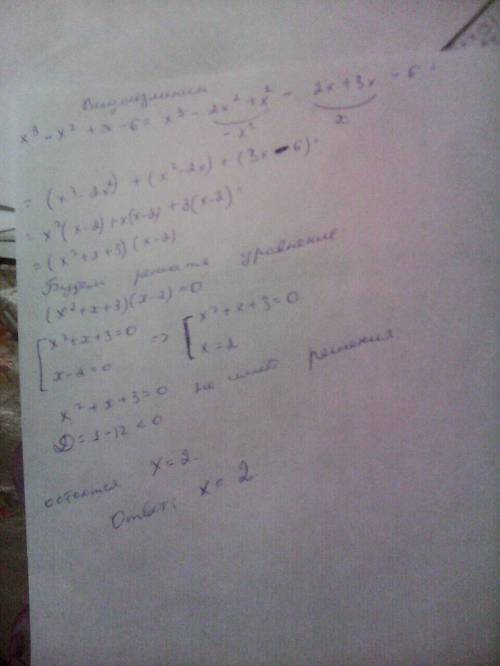 Видоизменим
x³ - x² + x - 6 = x³ - 2x² + x² - 2x + 3x - 6 =
-x² x
= (x³ - 2x²) + (x² - 2x) + (3x - 6) =
= x²(x-2) + x(x-2) + 3(x-2) =
= (x² + x + 3)(x-2)
Будем решать уравнение.
(x² + x + 3)(x-2) = 0
[ x² + x + 3 = 0 => [ x² + x + 3 = 0
x - 2 = 0 x = 2
x² + x + 3 = 0 не имеет решения.
D = 1 - 12 < 0
остается x = 2.
Ответ: x = 2